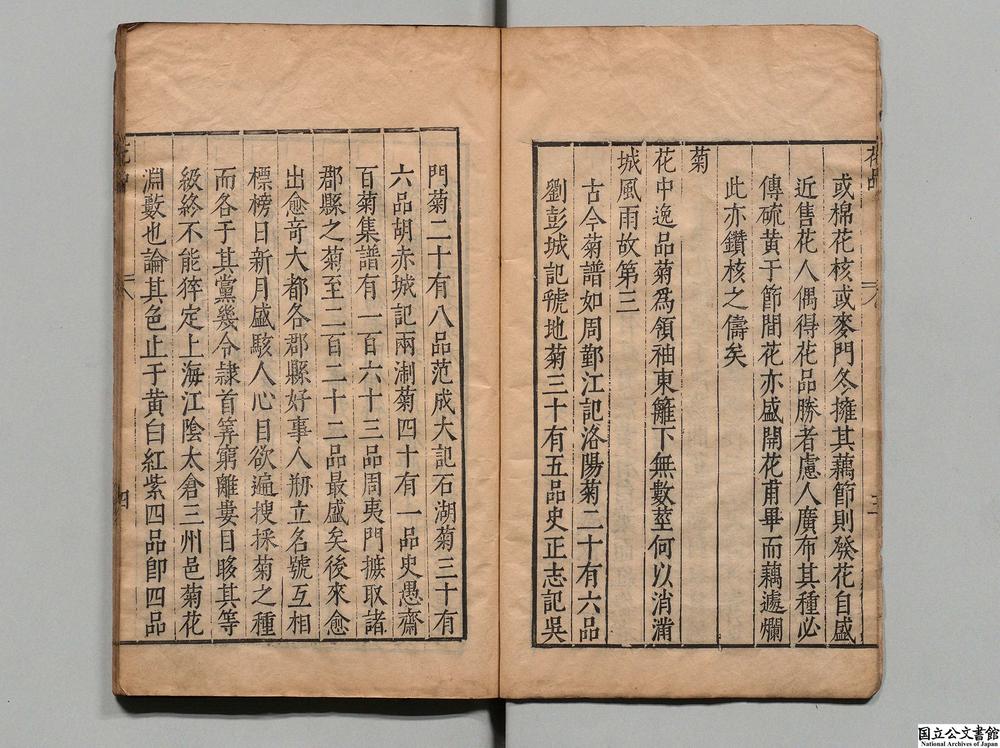 或棉花核或麥門冬擁其藕節則發花自盛
近售花人偶得花品勝者慮人廣布其種必
傳硫黄于節間花亦盛開花甫畢而藕遽爛
此亦鑽核之儔矣
菊
花中逸品菊爲領袖東籬下無數莖何以消滿
城風雨故第三
古今菊譜如周鄞江記洛陽菊二十有六品
劉彭城記虢地菊三十有五品史正志記吳
三
門菊二十有八品范成大記石湖菊三十有
六品胡赤城記兩淛菊四十有一品史愚齋
百菊集譜有一百六十三品周夷門摭取諸
郡縣之菊至二百二十二品最盛矣後來愈
出愈奇大都各郡縣好事人刱立名號互相
標榜日新月盛駭人心目欲遍搜採菊之種
而各于其黨幾令隷首筭窮離婁目眵其等
級終不能猝定上海江陰太倉三州邑菊花
淵藪也論其色止于黄白紅紫四品卽四品
四
国立公文書館
National Archives of Japan